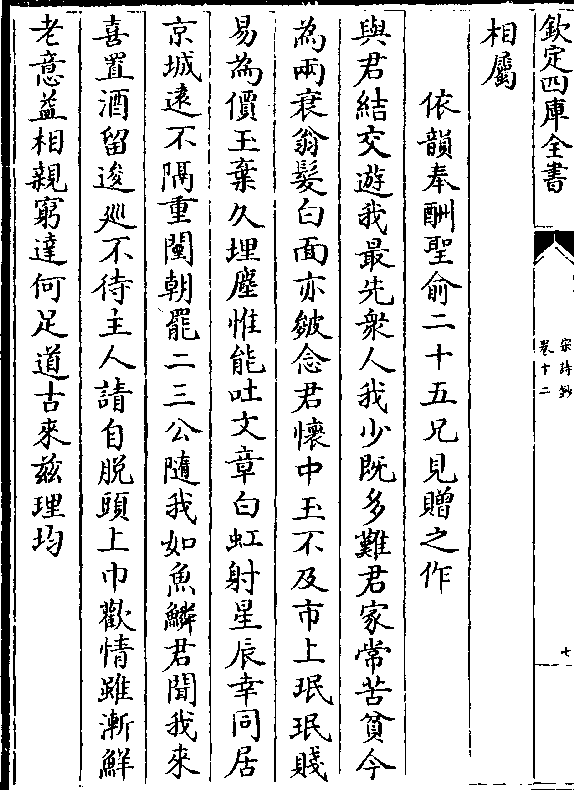 欽定四庫全書
宋詩鈔
卷十二
七
相屬
依韻奉酬聖俞二十五兄見贈之作
與君結交遊我最先衆人我少既多難君家常苦貧今
為兩衰翁髮白面亦皴念君懷中玉不及市上珉珉賤
易為價玉棄久埋塵惟能吐文章白虹射星辰幸同居
京城遠不隔重闉朝罷二三公隨我如魚鱗君聞我來
喜置酒留逡廵不待主人請自脫頭上巾歡情雖漸鮮
老意益相親窮達何足道古來兹理均